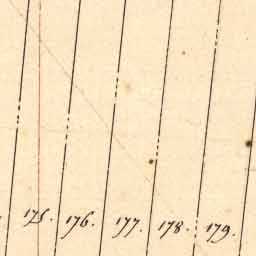 175. 176. 177. 178. 179.